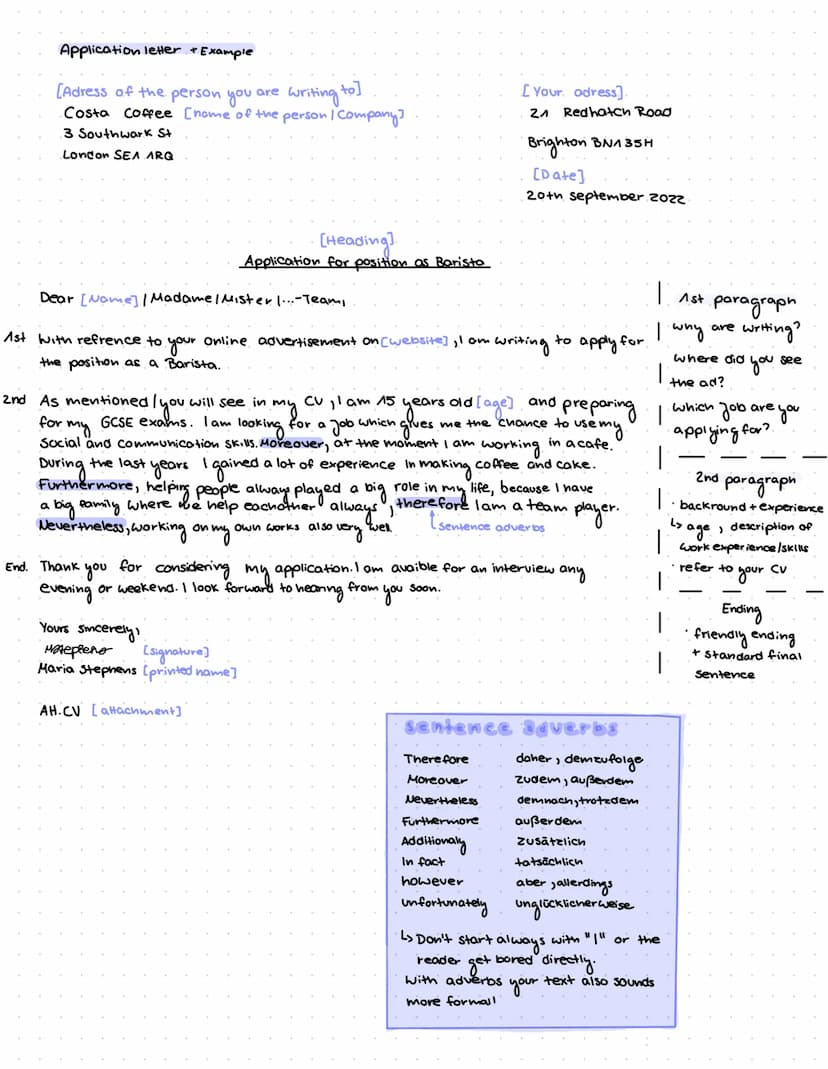 Application letter + Example
[Adress of the person you are writing to]
Costa Coffee [name of the person/Company]
3 Southwark St
London SE1 1RQ
[Your adress]
21 Redhatch Road
Brighton BN1 3SH
[Date]
20th september 2022
[Heading]
Application for position as Barista
Dear [Name] / Madame/Mister/...-Team,
1st With refrence to your online advertisement on [website], I am writing to apply for
the position as a Barista.
2nd As mentioned/you will see in my CV, I am 15 years old [age] and preparing
for my GCSE exams. I am looking for a job which gives me the chance to use my
social and communication skills. Moreover, at the moment I am working in a cafe.
During the last years I gained a lot of experience in making coffee and cake.
Furthermore, helping people always played a big role in my life, because I have
a big family where we help eachother always, therefore I am a team player.
Nevertheless, working on my own works also very well.
sentence adverbs
End. Thank you for considering my application. I am avaible for an interview any
evening or weekend. I look forward to hearing from you soon.
Yours sincerely,
[signature]
Maria Stephens [printed name]
Att.CV [attachment]
1st paragraph
why are writing?
where did you see
the ad?
which job are you
applying for?
2nd paragraph
· backround + experience
↳ age, description of
work experience/skills
· refer to your CV
Ending
· friendly ending
+ standard final
sentence
sentence adverbs
Therefore daher, demzufolge
Moreover zudem, außerdem
Nevertheless demnach, trotzdem
Furthermore außerdem
Additionaly zusätzlich
In fact tatsächlich
however aber, allerdings
unfortunately unglücklicherweise
↳ Don't start always with "I" or the
reader get bored directly.
With adverbs your text also sounds
more formal!